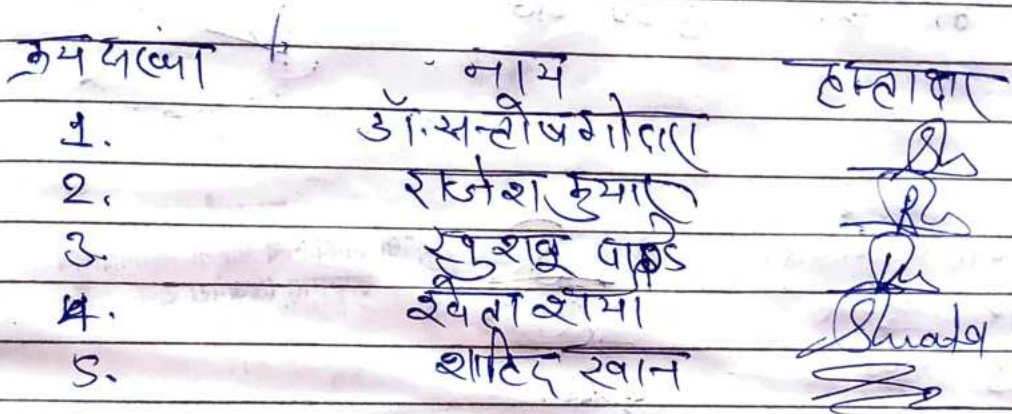 क्रम संख्या नाम हस्ताक्षर
1. डॉ. सन्तोष गोदारा
2. राजेश कुमार
3. खुशबू पाण्डे
4. श्वेता शर्मा Shwata
5. शाहिद खान